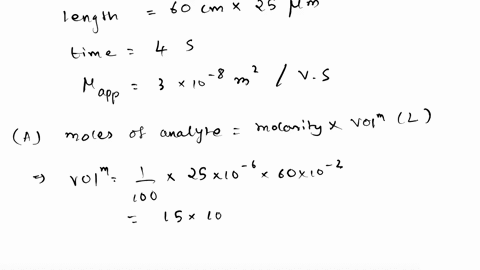 length = 60 cm × 25 μm
time = 4 S
μapp = 3 × 10⁻⁸ m² / V.S
(A) moles of analyte = molarity × volᵐ (L)
⇒ volᵐ = 1/100 × 25×10⁻⁶ × 60×10⁻²
= 15 × 10